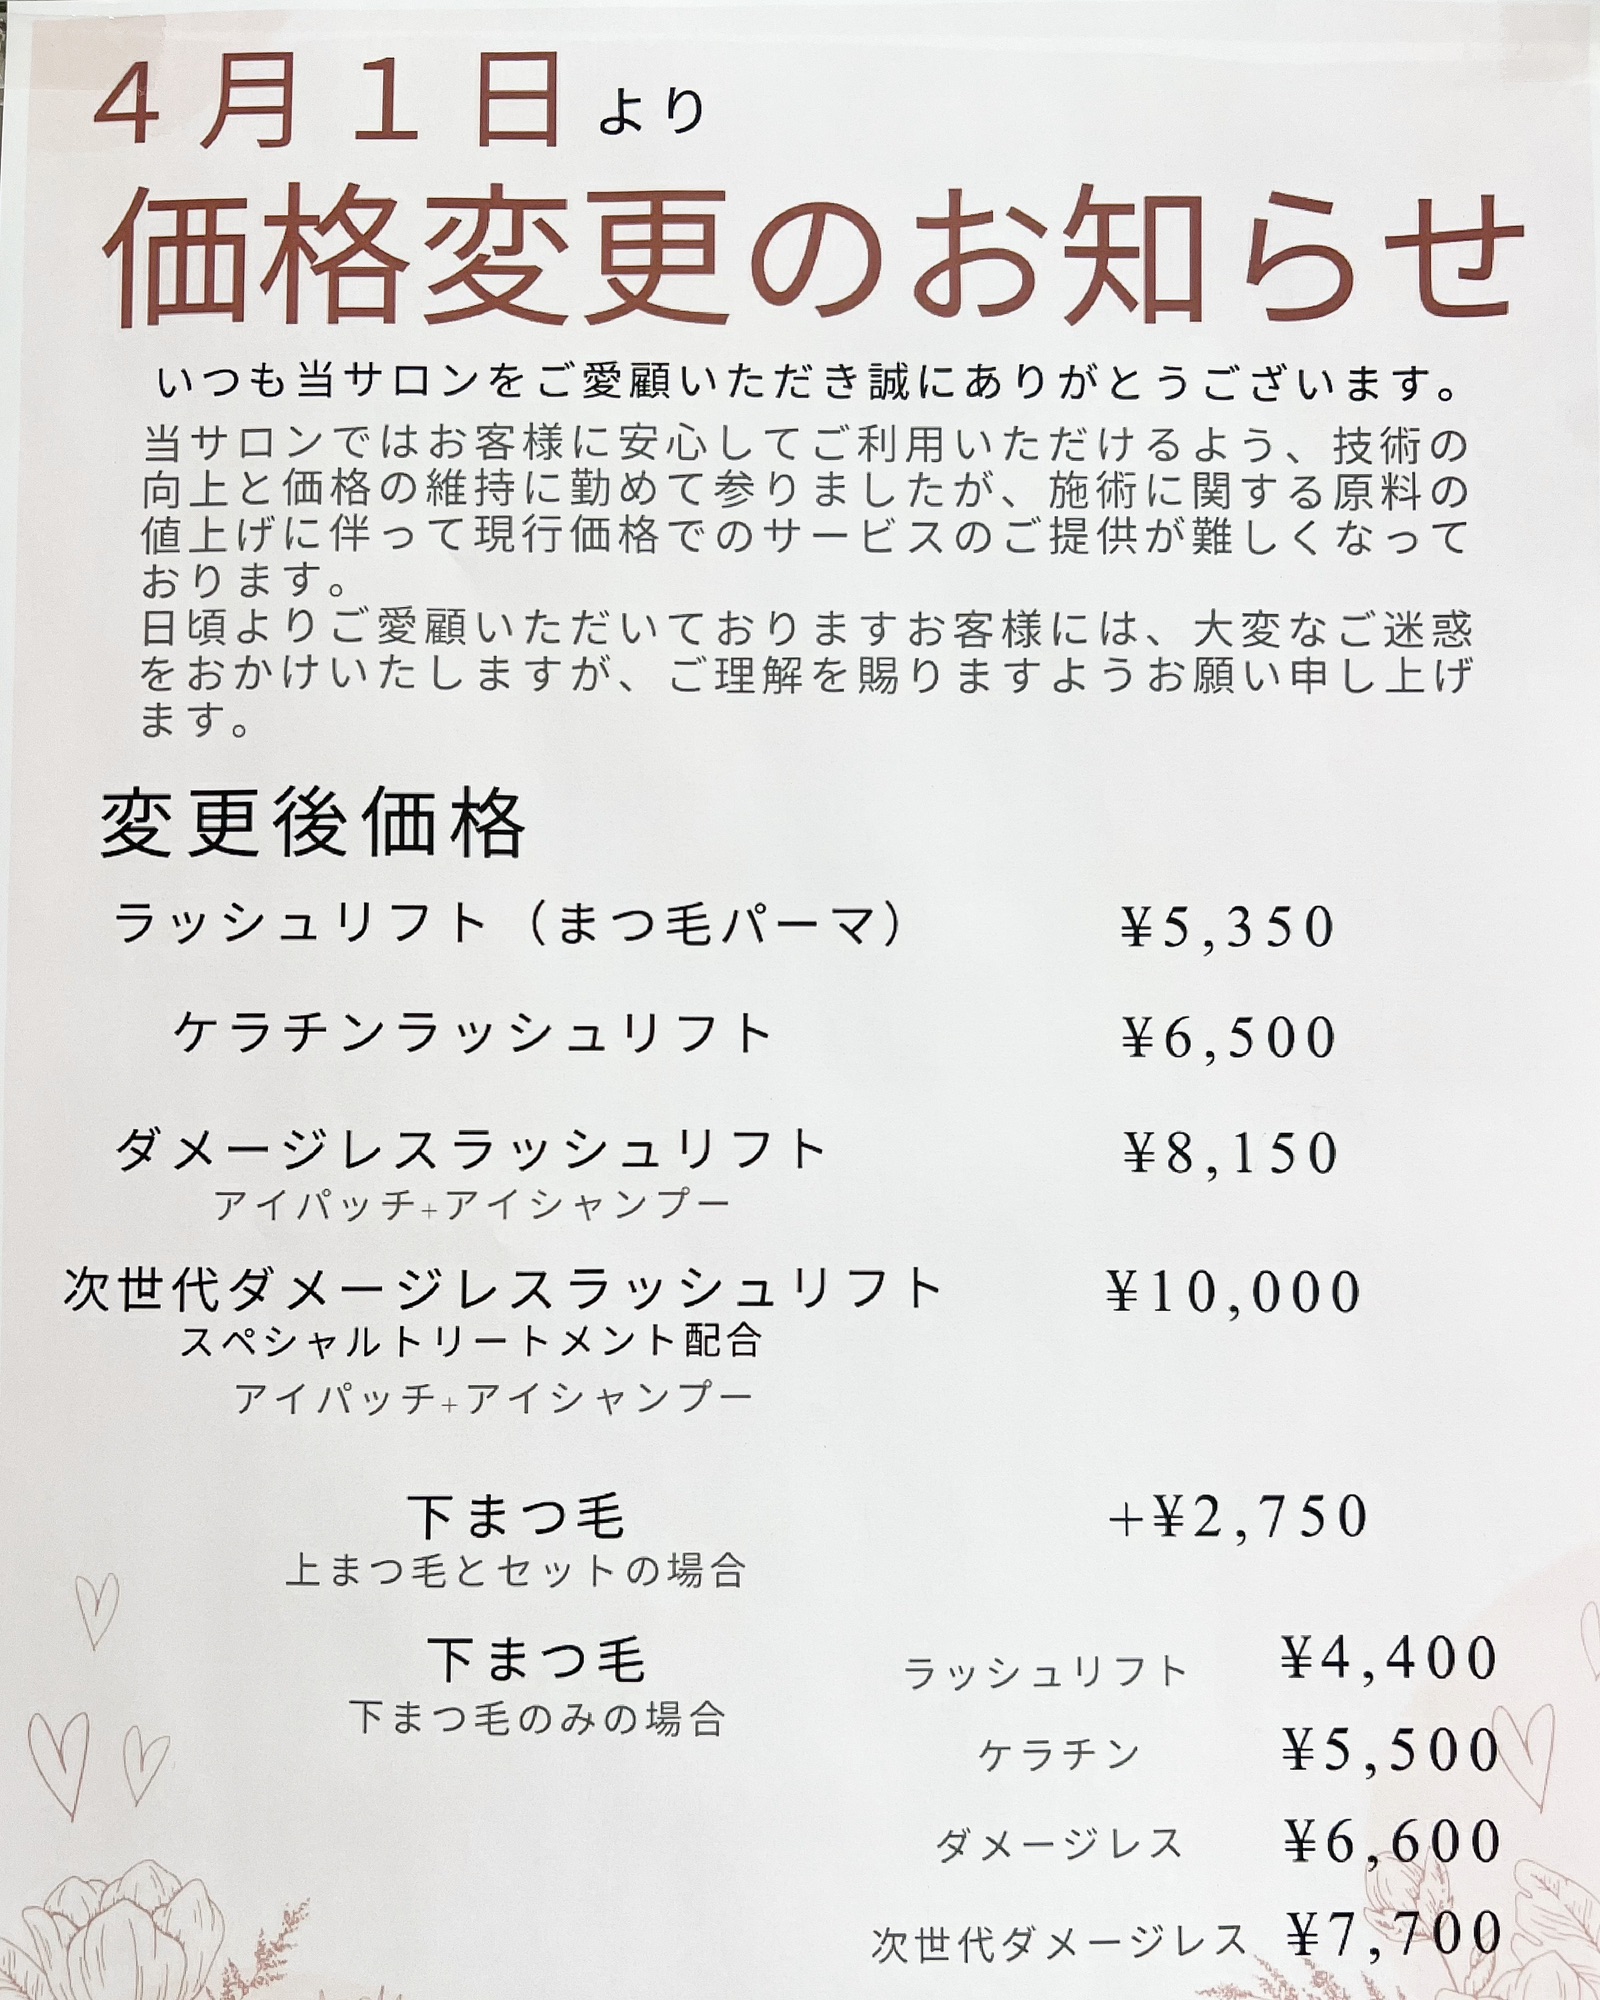 4月1日より
価格変更のお知らせ
いつも当サロンをご愛顧いただき誠にありがとうございます。
当サロンではお客様に安心してご利用いただけるよう、技術の
向上と価格の維持に勤めて参りましたが、施術に関する原料の
値上げに伴って現行価格でのサービスのご提供が難しくなって
おります。
日頃よりご愛顧いただいておりますお客様には、大変なご迷惑
をおかけいたしますが、ご理解を賜りますようお願い申し上げ
ます。
変更後価格
ラッシュリフト（まつ毛パーマ） ¥5,350
ケラチンラッシュリフト ¥6,500
ダメージレスラッシュリフト ¥8,150
アイパッチ+アイシャンプー
次世代ダメージレスラッシュリフト ¥10,000
スペシャルトリートメント配合
アイパッチ+アイシャンプー
下まつ毛 +¥2,750
上まつ毛とセットの場合
下まつ毛 ラッシュリフト ¥4,400
下まつ毛のみの場合
ケラチン ¥5,500
ダメージレス ¥6,600
次世代ダメージレス ¥7,700